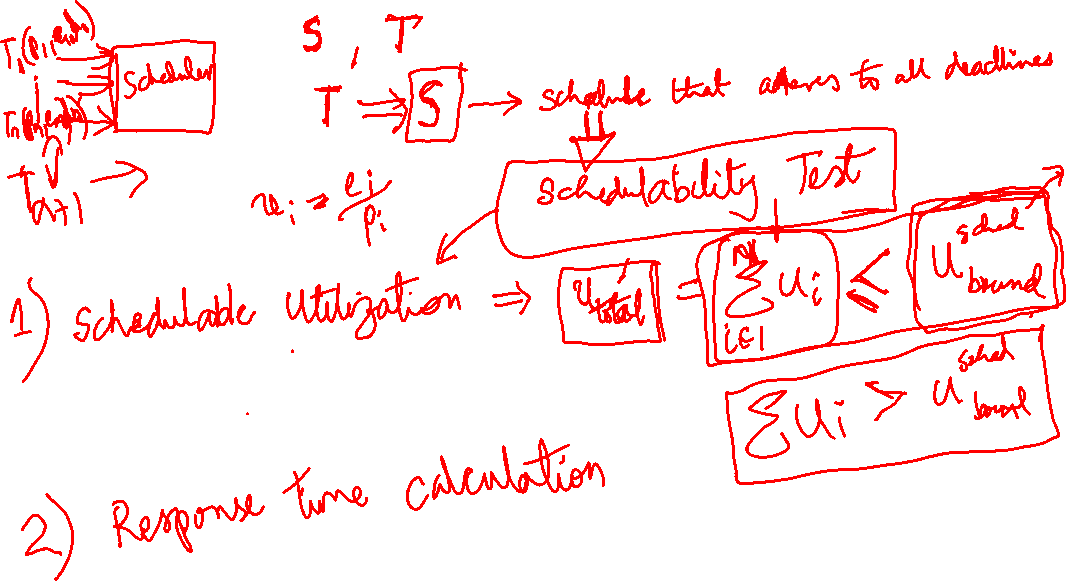 S , T
Scheduler
T S schedule that adheres to all deadlines
T_{n+1}
Schedulability Test
u_i = e_i/p_i
1) Schedulable Utilization ⇒ U_total = \sum_{i=1}^{n} u_i ≤ U_bound^sched
∑ u_i > U_bound^sched
2) Response time calculation